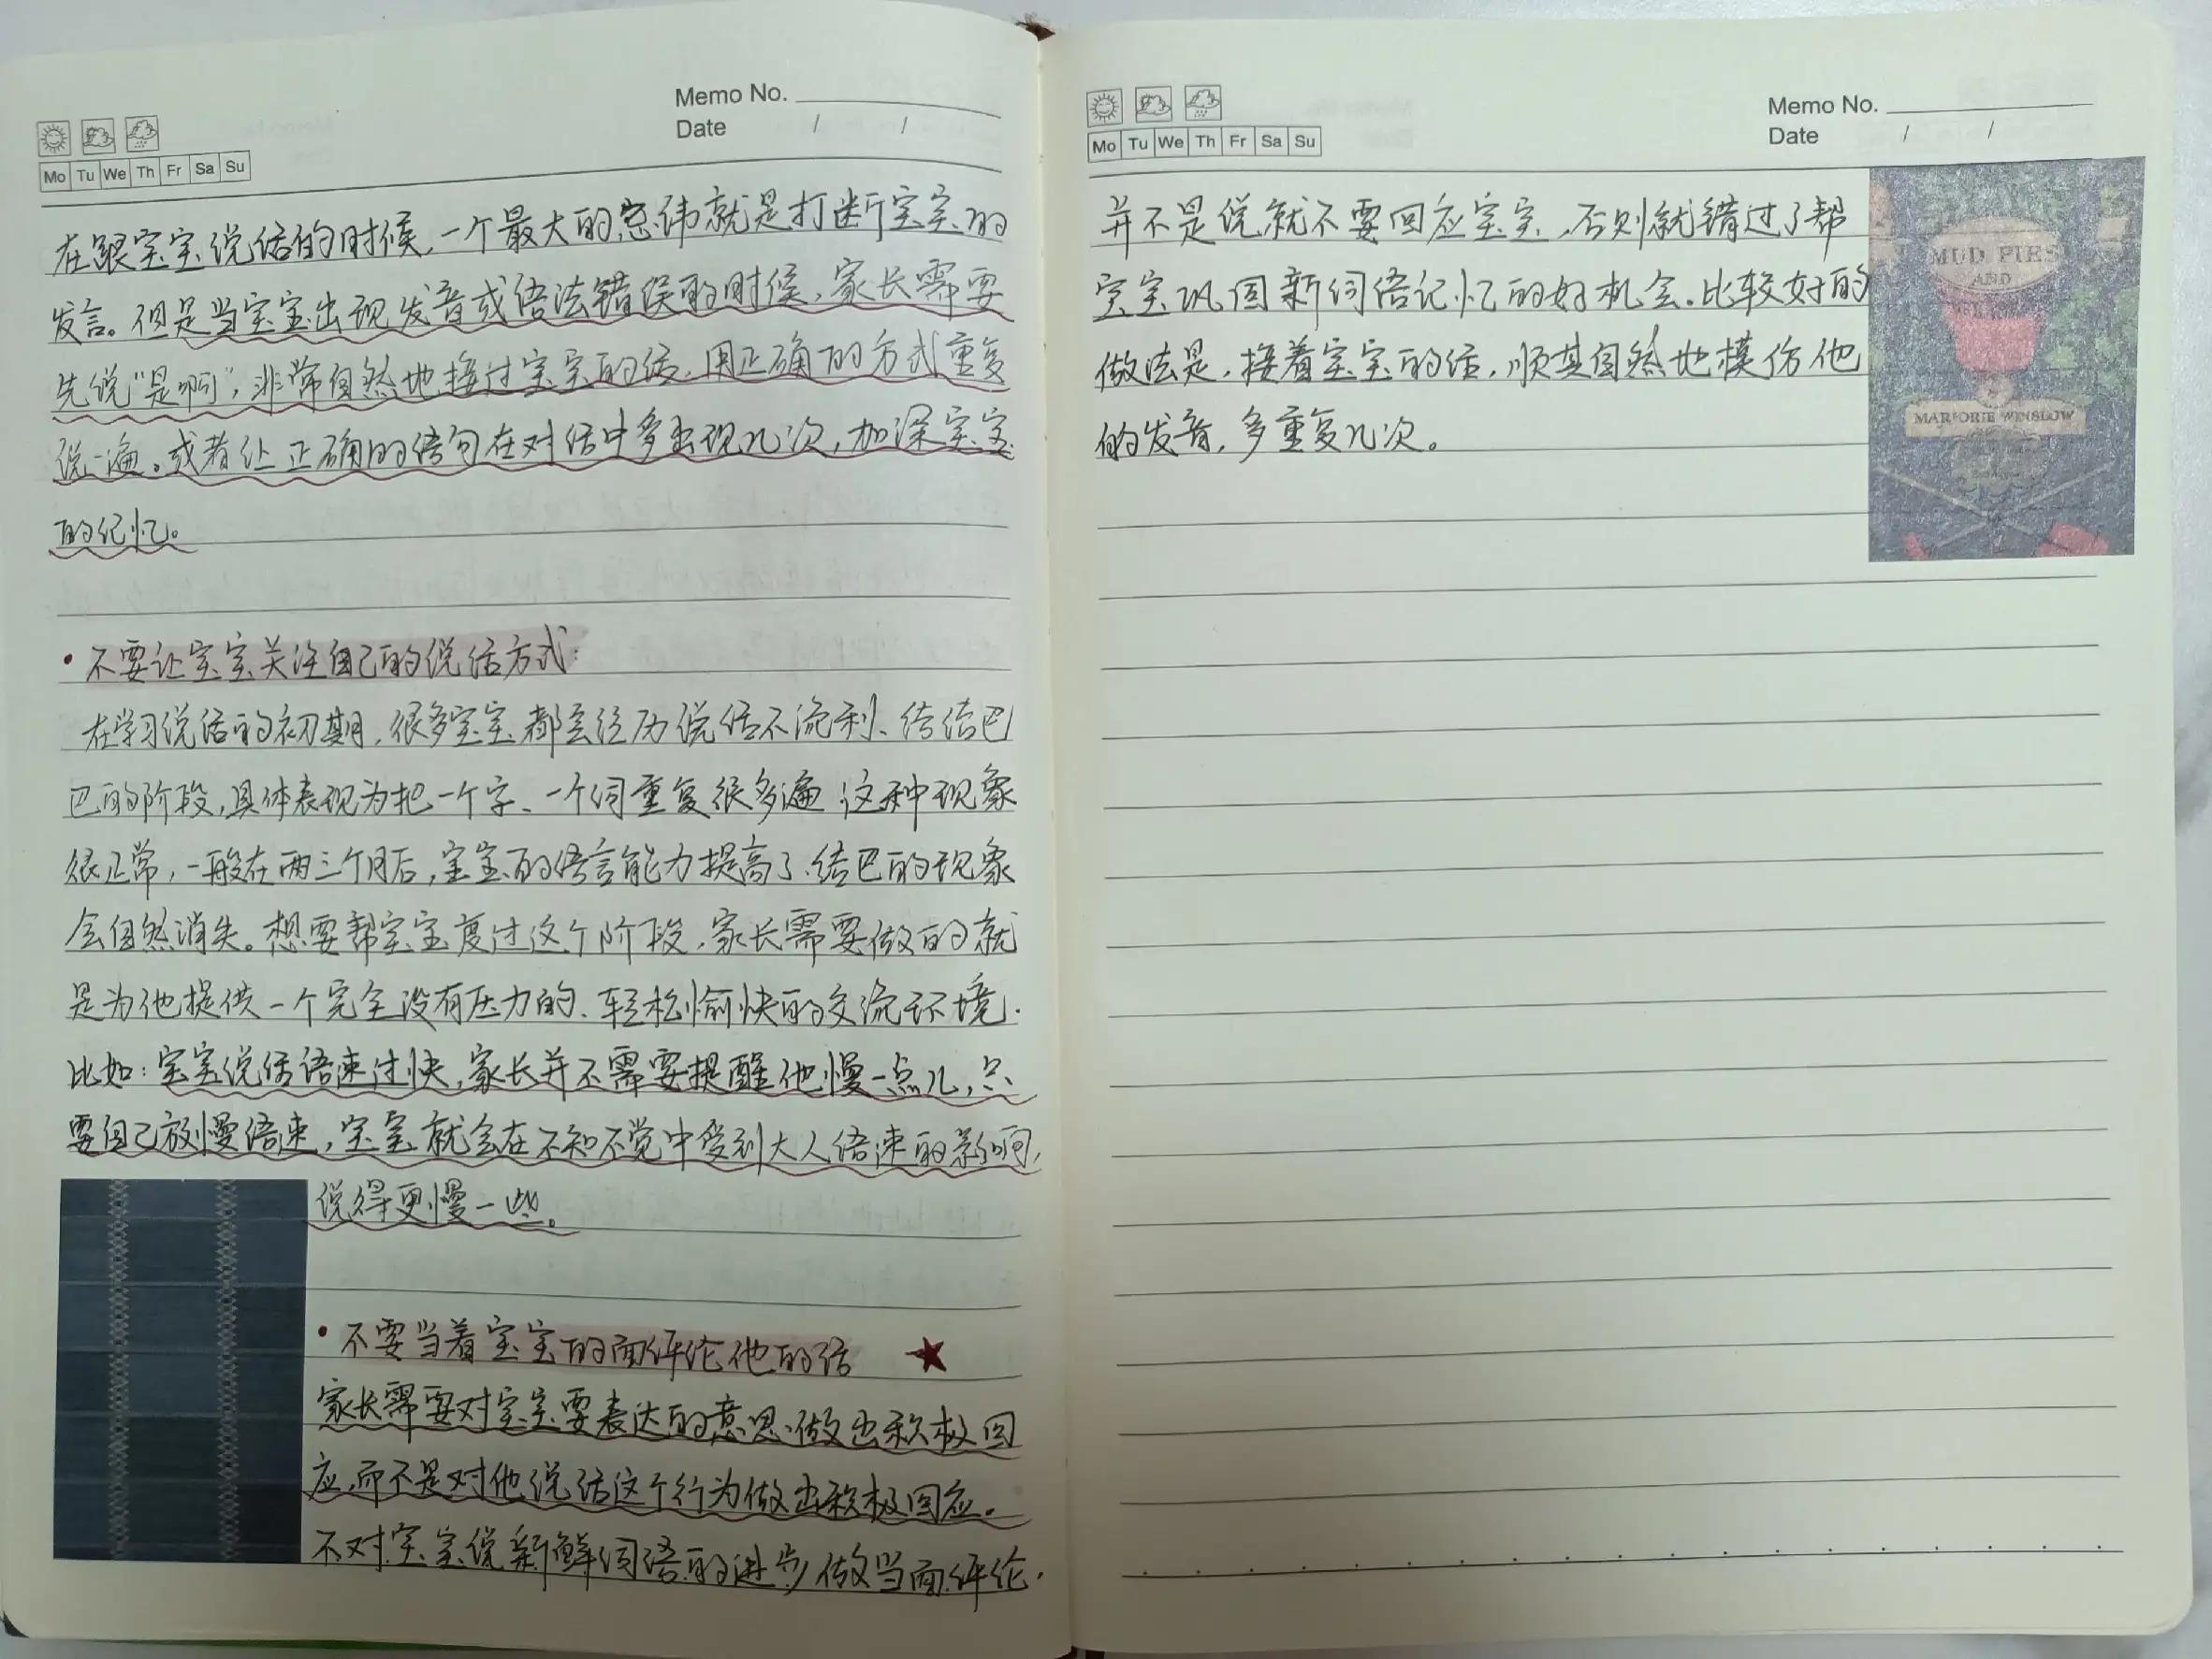 Memo No.
Date / /
Mo Tu We Th Fr Sa Su
在跟宝宝说话的时候,一个最大的忌讳就是打断宝宝的
发言。但是当宝宝出现发音或语法错误的时候,家长需要
先说“是啊”,非常自然地接过宝宝的话,用正确的方式重复
说一遍。或者让正确的语句在对话中多出现几次,加深宝宝
的记忆。
• 不要让宝宝关注自己的说话方式:
在学习说话的初期,很多宝宝都会经历说话不流利、结结巴
巴的阶段,具体表现为把一个字、一个词重复很多遍.这种现象
很正常,一般在两三个月后,宝宝的语言能力提高了.结巴的现象
会自然消失。想要帮宝宝度过这个阶段,家长需要做的就
是为他提供一个完全没有压力的、轻松愉快的交流环境.
比如:宝宝说话语速过快,家长并不需要提醒他慢一点儿,只
要自己放慢语速,宝宝就会在不知不觉中受到大人语速的影响,
说得更慢一些。
• 不要当着宝宝的面评论他的话 ★
家长需要对宝宝要表达的意思做出积极回
应,而不是对他说话这个行为做出积极回应。
不对宝宝说新鲜词语的进步做当面评论.
Memo No.
Date / /
Mo Tu We Th Fr Sa Su
并不是说就不要回应宝宝,否则就错过了帮
宝宝巩固新词语记忆的好机会.比较好的
做法是,接着宝宝的话,顺其自然地模仿他
的发音,多重复几次。
MUD PIES
AND
MARJORIE WINSLOW